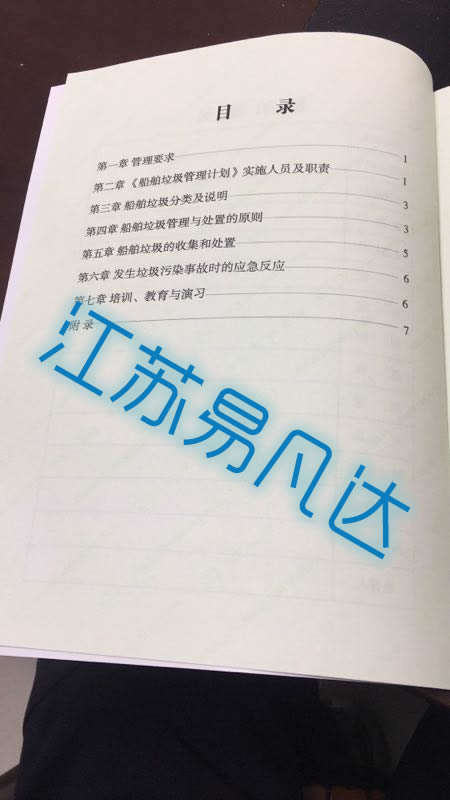 目 录
第一章 管理要求 1
第二章 《船舶垃圾管理计划》实施人员及职责 1
第三章 船舶垃圾分类及说明 3
第四章 船舶垃圾管理与处置的原则 3
第五章 船舶垃圾的收集和处置 5
第六章 发生垃圾污染事故时的应急反应 6
第七章 培训、教育与演习 6
附 录 7
江苏易凡达